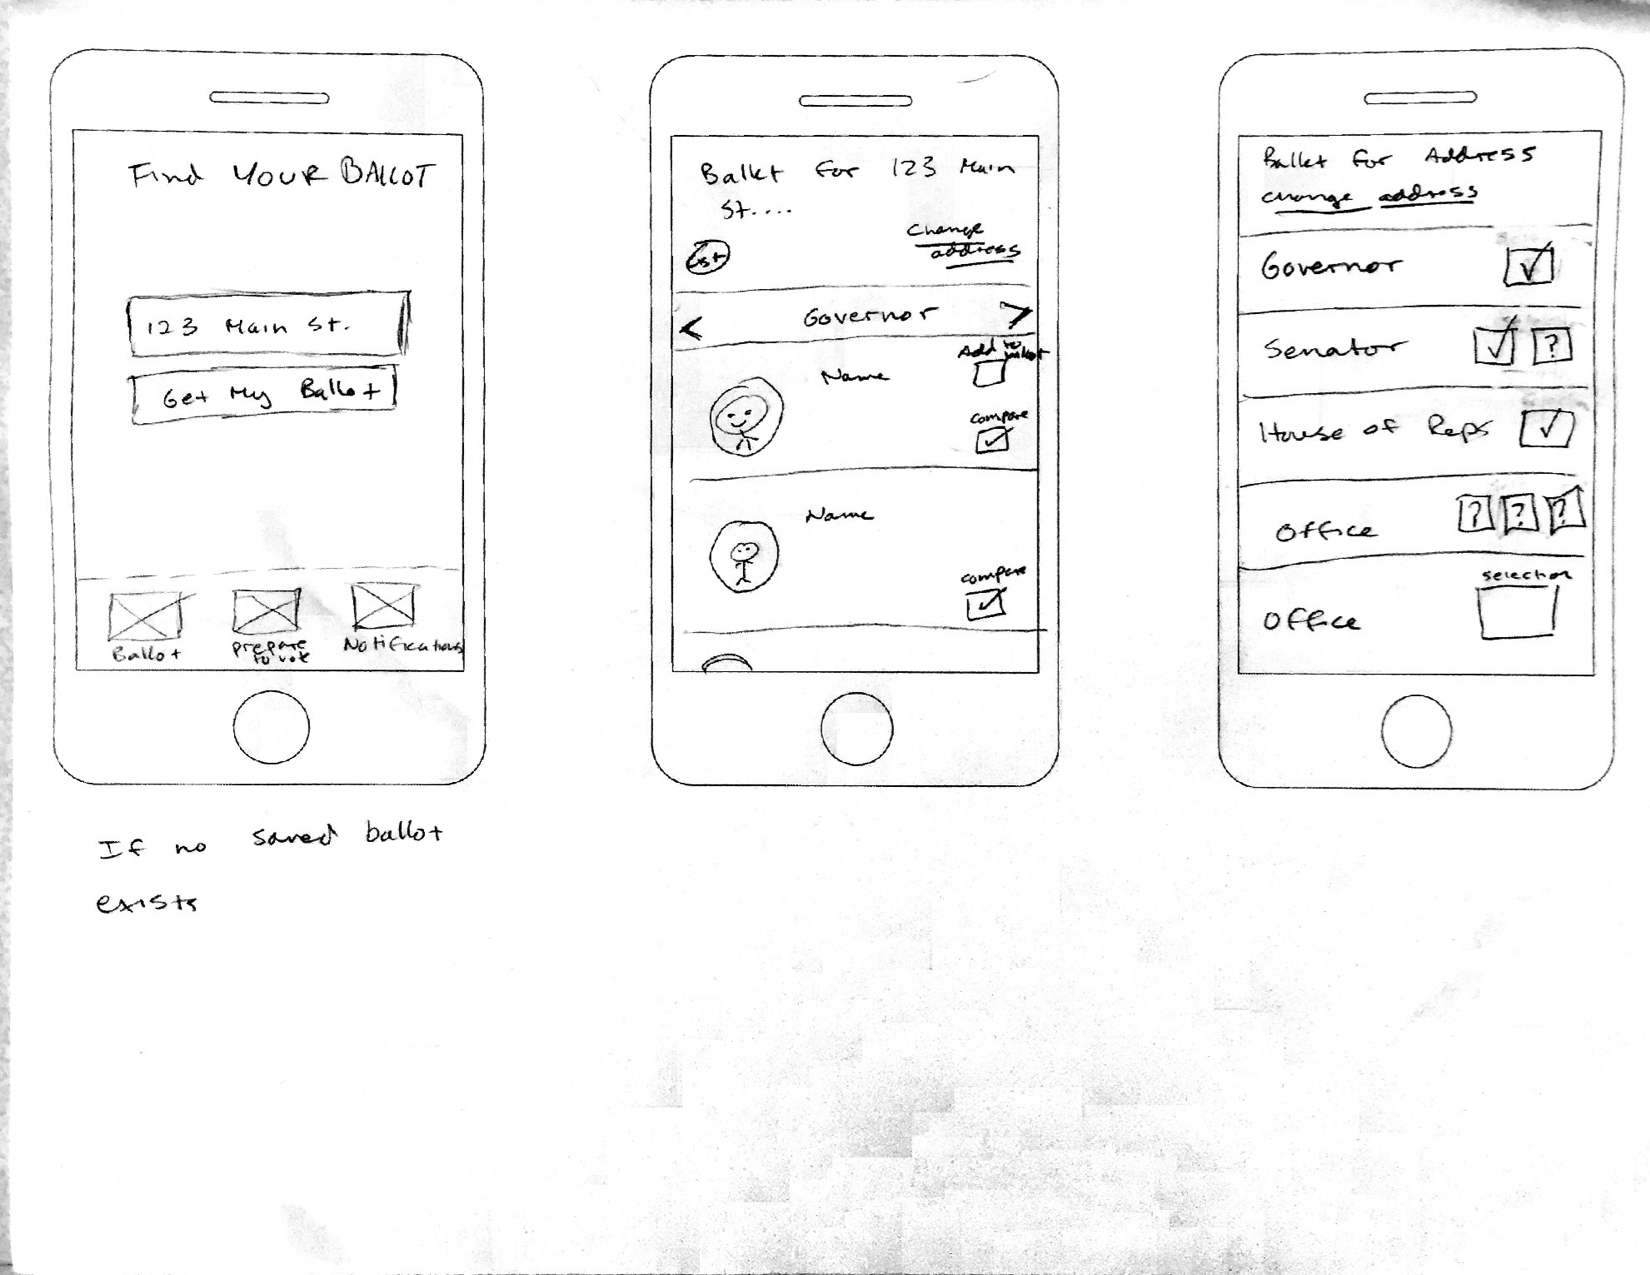 Find YOUR BALLOT
123 Main St.
Get My Ballot
Ballot
prepare
to vote
Notifications
If no saved ballot
exists
Ballot for 123 Main
St....
Change
address
List
< Governor >
Add to
ballot
Name
compare
Name
compare
Ballot for Address
change address
Governor
Senator ?
House of Reps
Office ? ? ?
selection
Office